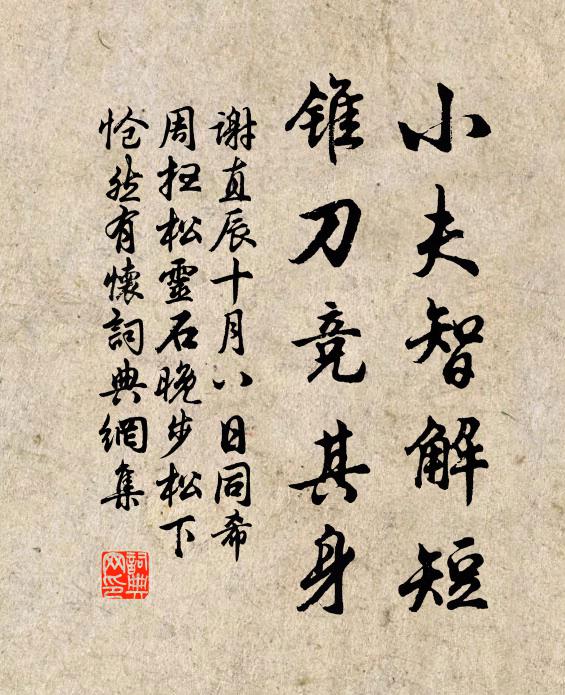 小夫智解短
锥刀竞其身
谢直辰十月八日同希
周扫松灵石晚步松下
怆然有懷詞典網集
詞典
网印